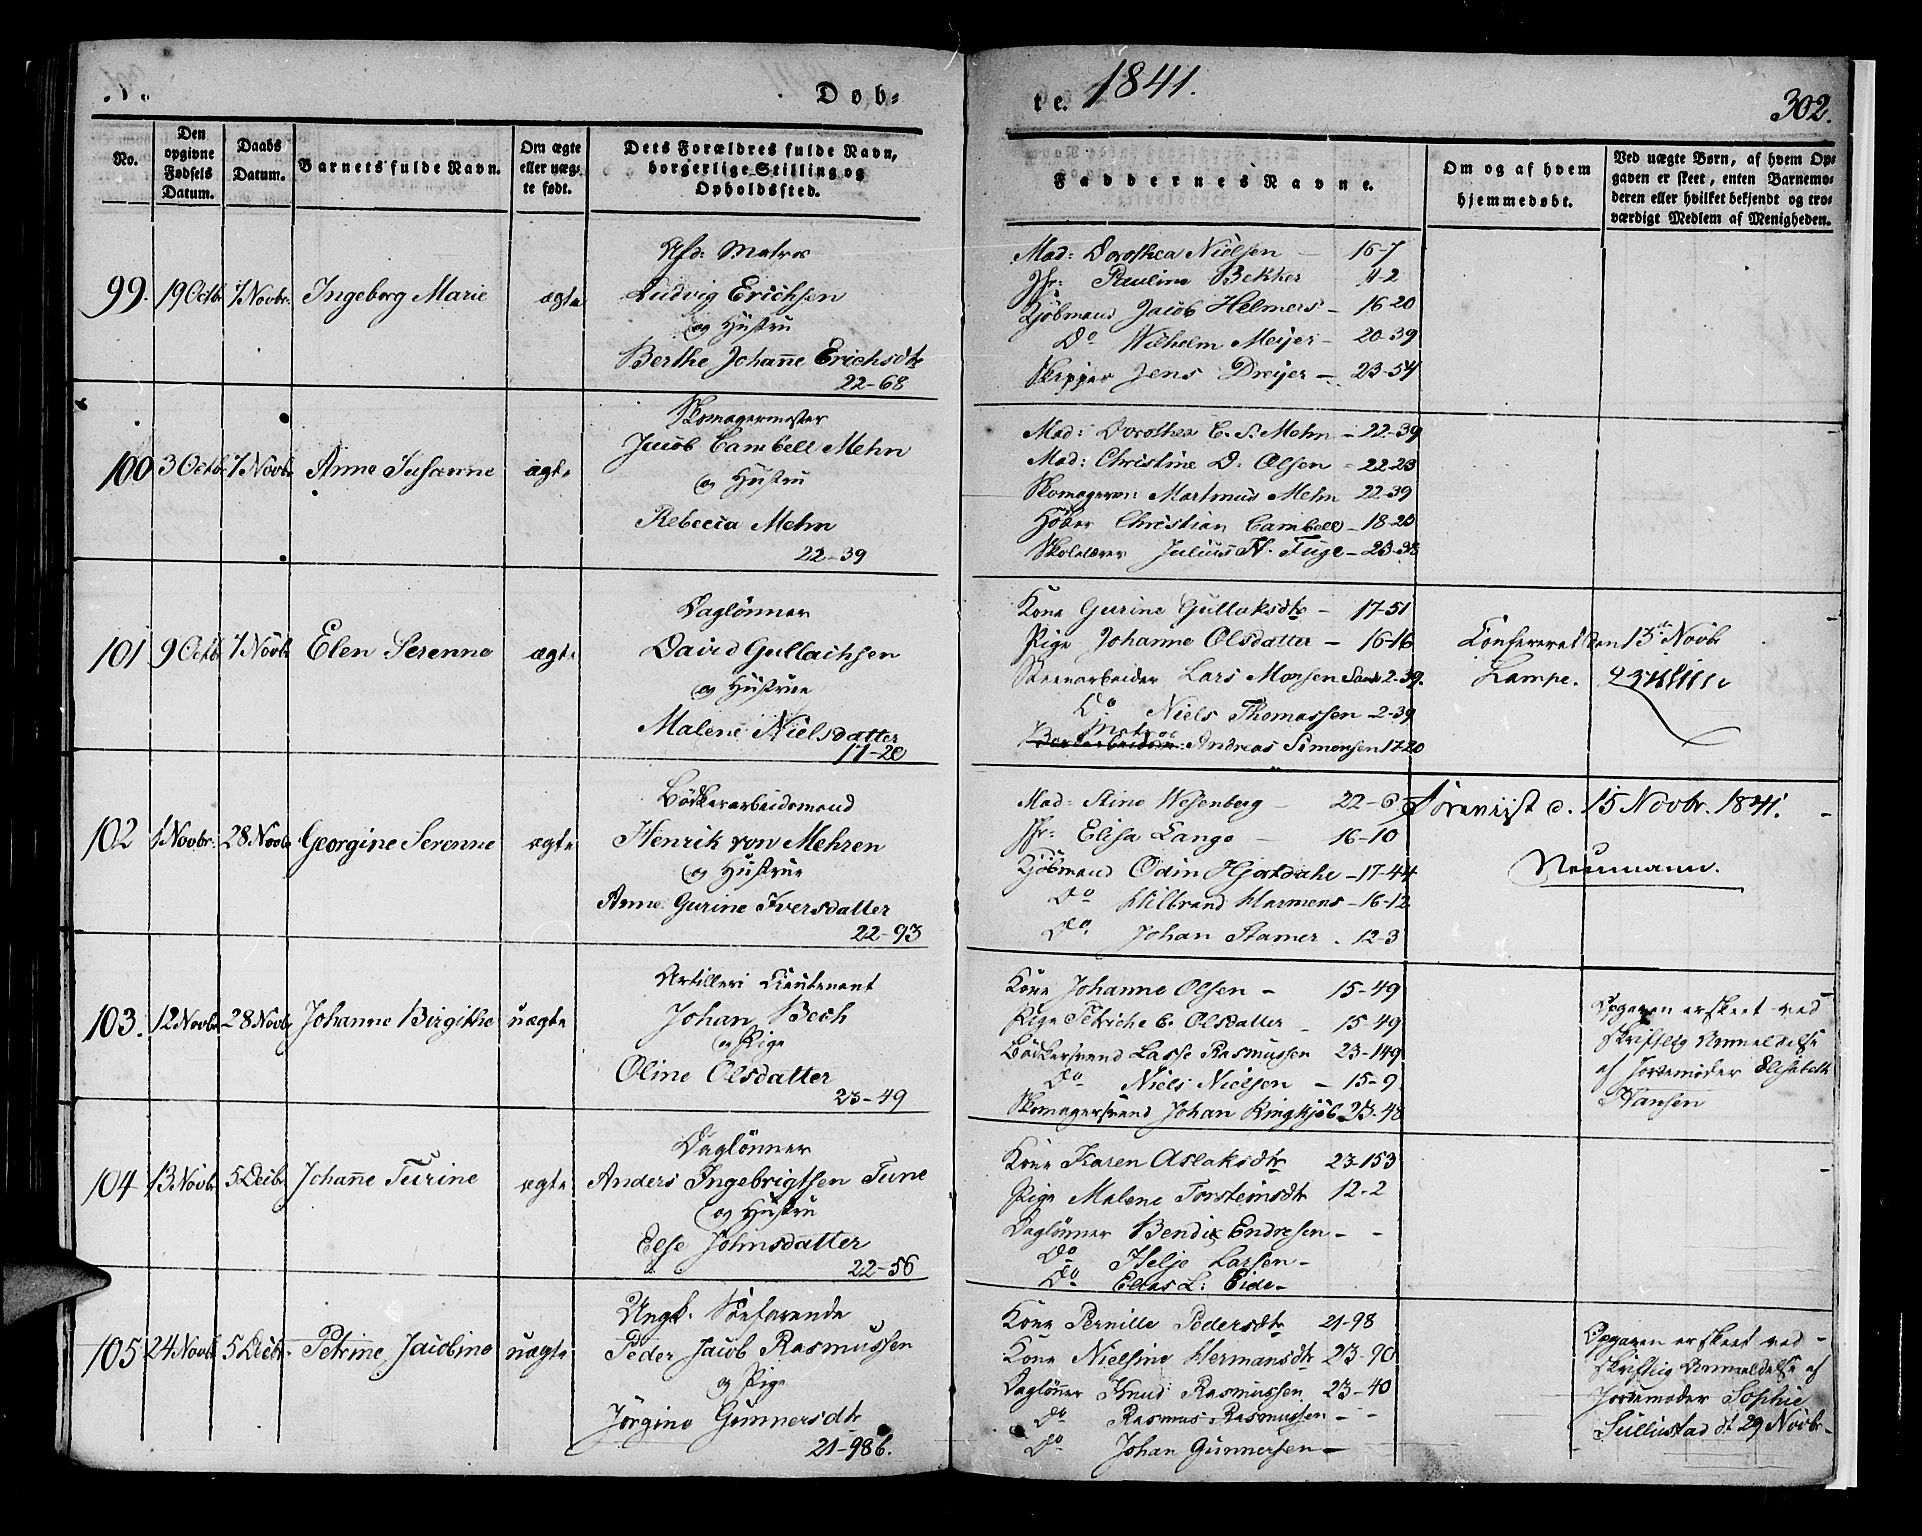 Dob=
te. 1841.
302.
No.
Den opgivne Fødsels Datum.
Daabs Datum.
Barnets fulde Navn.
Om ægte eller uægte født.
Dets Forældres fulde Navn, borgerlige Stilling og Opholdssted.
Faddernes Navne.
Om og af hvem hjemmedøbt.
Ved uægte Børn, af hvem Opgaven er skeet, enten Barnemoderen eller hvilket bekjendt og troværdigt Medlem af Menigheden.
99. 19 Octb 7 Novbr. Ingeborg Marie ægte
Afsk: Matros
Ludvig Erichsen
og Hustru
Berthe Johanne Erichsdtr
22-68
Mad: Dorothea Nielsen - 16-7
Jfr: Pauline Bekker 4-2
Kjøbmand Jacob Helmers - 16-20
Do Wilhelm Meijer - 20-39
Skipper Jens Dreijer - 23-54
100 3 Octbr 7 Novbr Anne Susanne ægte
Skomagermester
Jacob Cambell Mehn
og Hustru
Rebecca Mehn
22-39
Mad: Dorothea C. S. Mehn - 22-39
Mad: Christine D: Olsen - 22-23
Skomagersv: Martinus Mehn 22-39
Høker Christian Cambell - 18-20
Skolelærer Julius H. Fuge - 23-38
101 9 Octb 7 Novbr Elen Serenne ægte
Daglönner
David Gullachsen
og Hustrue
Malene Nielsdatter
17-20
Kone Gurine Gullaksdtr - 17-51
Pige Johanne Olsdatter - 16-16
Steenarbeider Lars Monsen Sand 2-39.
Do Niels Thomassen - 2-39
Matros
Andreas Simonsen 17-20
Confereret den 13de Novb
Lampe.
102 1 Novbr. 28 Novb Georgine Serenne ægte
Bödkerarbeidsmand
Henrik von Mehren
og Hustrue
Anne Gurine Iversdatter
22-93
Mad: Stine Wesenberg - 22-6
Jfr: Elisa Lange - 16-10
Kjøbmand Odin Hjortdahl - 17-44
Do Hilbrand Harmens - 16-12
Do Johan Stamer . 12-3
Foreviist d. 15 Novbr. 1841.
Neumann.
103. 12 Novbr 28 Novb Johanne Birgithe uægte
Artilleri Lieutenant
Johan Bech
og Pige
Oline Olsdatter
23-49
Kone Johanne Olsen - 15-49
Pige Petriche C. Olsdatter - 15-49
Bödkersvend Lasse Rasmussen 23-149
Do Niels Nielsen - 15-9
Skomagersvend Johan Ringkjöb 23-48
Opgaven er skeet ved
skriftlig Anmeldelse
af Jordemoder Elisabeth
Hansen
104 13 Novb 5 Decbr Johanne Turine ægte
Daglönner
Anders Ingebrigtsen Tune
og Hustru
Else Johnsdatter
22-56
Kone Karen Aslaksdtr 23-153
Pige Malene Torsteinsdtr 12-2
Daglönner Bendix Endresen - -
Do Helje Larsen -
Do Elias L: Eide -
105 24 Novb 5 Decbr. Petrine Jacobine uægte
Ungk. Söefarende
Peder Jacob Rasmussen
og Pige
Jörgine Gunnersdtr
21-98 b.
Kone Pernille Pedersdtr 21-98
Kone Nielsine Hermansdtr 23-90
Daglönner Knud Rasmussen 23-40
Do Rasmus Rasmussen - -
Do Johan Gunnersen -
Opgaven er skeet ved
skriftlig Anmeldelse af
Jordemoder Sophie
Sullustad dt 29 Novbr.